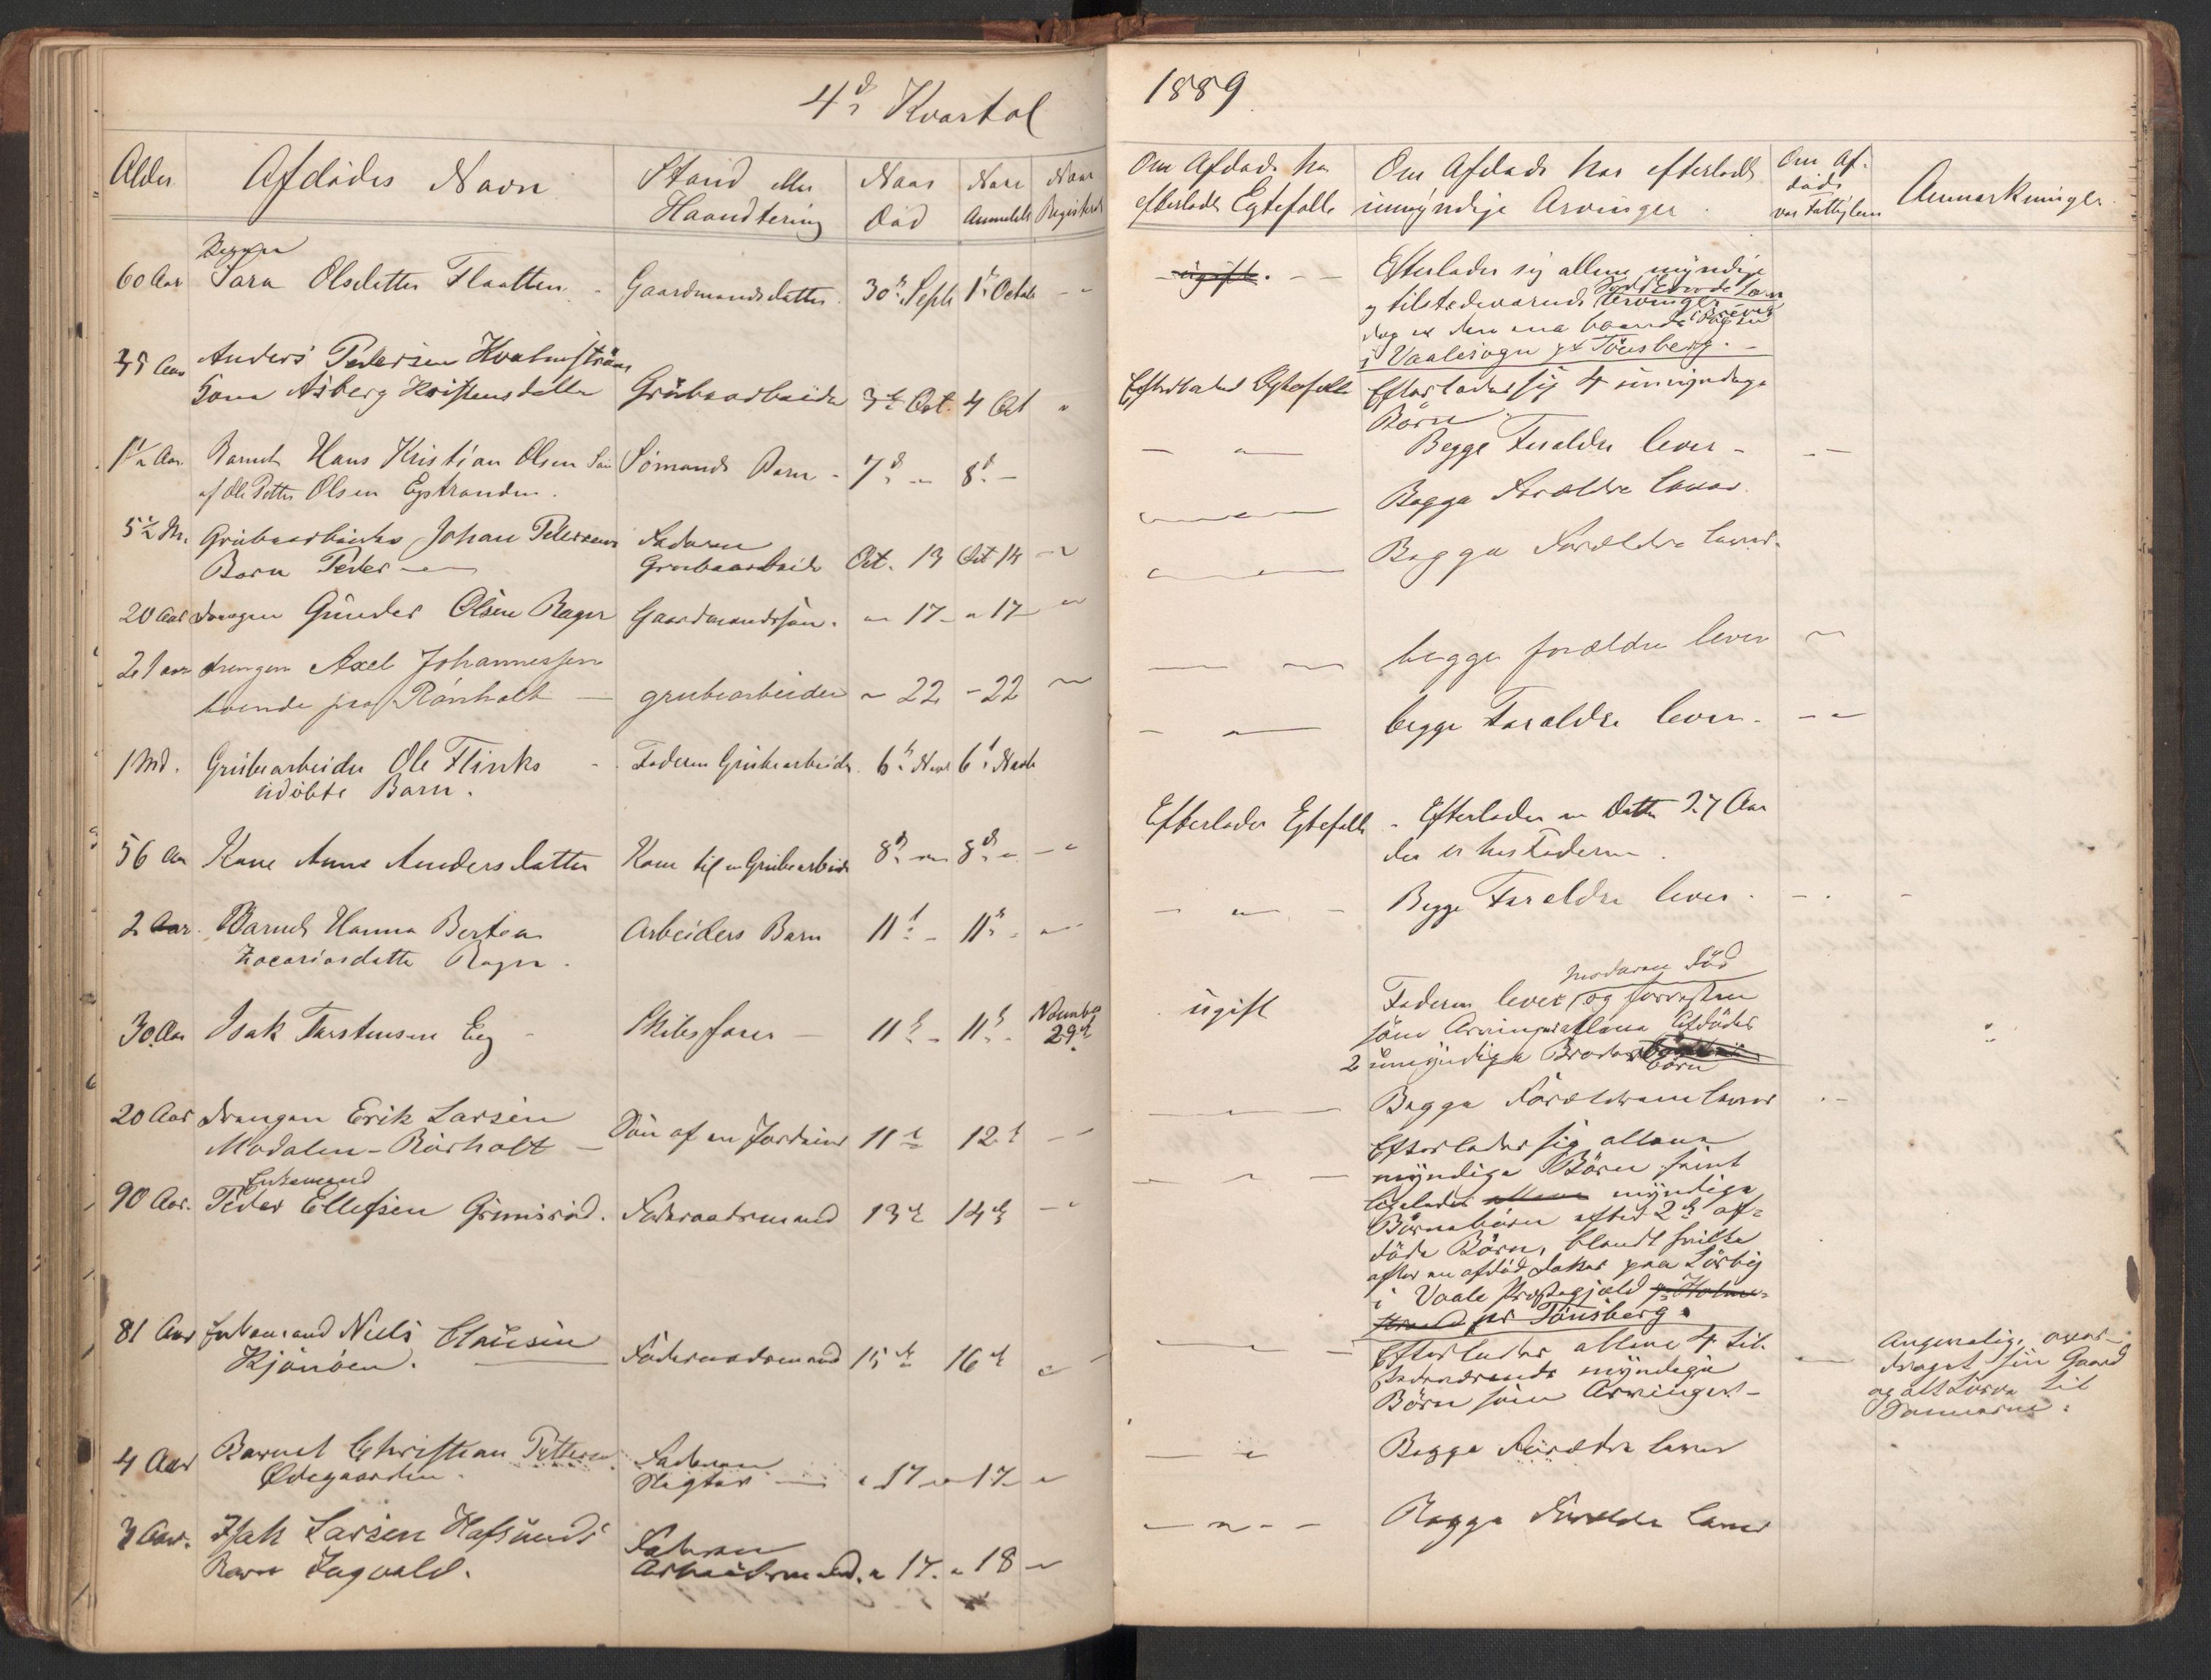 4de Kvartal
1889
Alder
Afdødes Navn
Stand eller
Haandtering
Naar
Död
Naar
Anmeldt
Naar
Registeret
Om Afdøde har
efterladt Egtefelle
Om Afdøde har efterladt
umyndige Arvinger
Om Af-
døde
var Fattiglem
Anmærkninger
60 Aar
Sara Olsdatter Flaatten
Gaardmandsdatter
30te Septb
1te Octob
ugift
Efterlader sig allene myndige
og tilstedeværende Arvinger
dog er den ene boende
i Vaalesogn pr Tönsberg.
35 Aar
Anders Pedersen Hvalmstrøms
Kone Asberg Kristensdatter
Grubearbeider
3de Oct.
4 Oct
Efterladt Egtefelle
Efterlader sig 4 umyndige
Börn
1½ Aar
Barnet Hans Kristian Olsen Sön
af Ole Petter Olsen Egstranden.
Sømands Barn
7de
8de
Begge Forældre lever
5½ M.
Grubearbeider Johan Petersens
Barn Peder
Faderen
Grubearbeider
Oct. 13
Oct 14
Begge Forældre lever.
20 Aar
Drengen Gunder Olsen Ragn
Gaardmandssön.
17
17
Begge Forældre lever.
21 aar
drengen Axel Johannessen
boende paa Rörholt
grubearbeider
22
22
begge forældre lever
1 Md.
Grubearbeider Ole Flinks
udöbte Barn.
Faderen Grubearbeider
6te Novb
6te Novb
begge Forældre lever.
56 Aar
Kone Anne Andersdatter
Kone til en Grubearbeider
8de
8de
Efterlader Egtefelle
Efterlader en Datter 27 Aar
der er hos Faderen.
2 Aar.
Barnet Hanna Bertea
Zacariasdatter Ragn.
Arbeiders Barn
11te
11te
Begge Forældre lever.
30 Aar
Isak Torstensen Eeg
Skibsförer
11te
11te
November
29de
ugift
Moderen död
Faderen lever og forresten
som Arvinger allene Afdødes
2 umyndige Broder
börn
20 Aar
Drengen Erik Larsen
Modalen-Rörholt
Sön af en Jordeier
11te
12te
Begge Forældrene lever
90 Aar.
Enkemand
Peder Ellefsen Grimsröd.
Föderaadsmand
13de
14de
Efterlader sig allene
myndige Börn samt
ligeledes allene myndige
Börnebörn efter 2de af-
døde Börn, blandt hvilke
efter en afdöd Datter paa Sörby
i Vaale Prestegjæld pr Holme-
strand pr Tönsberg.
81 Aar
Enkemand Niels Clausen
Kjönöen.
Föderaadsmand
15de
16de
Efterlader allene 4 til-
stedeværende myndige
Börn som Arvinger
Angivelig over-
draget sin Gaard
og alt Lösöre til
Sønnerne.
4 Aar
Barnet Christian Pettersen
Ødegaarden.
Faderen
Stigter
17
17
Begge Forældre lever
3 Aar.
Isak Larsen Hafsunds
Barn Ingvald.
Faderen
Arbeidsmand.
17.
18
Begge Forældre lever